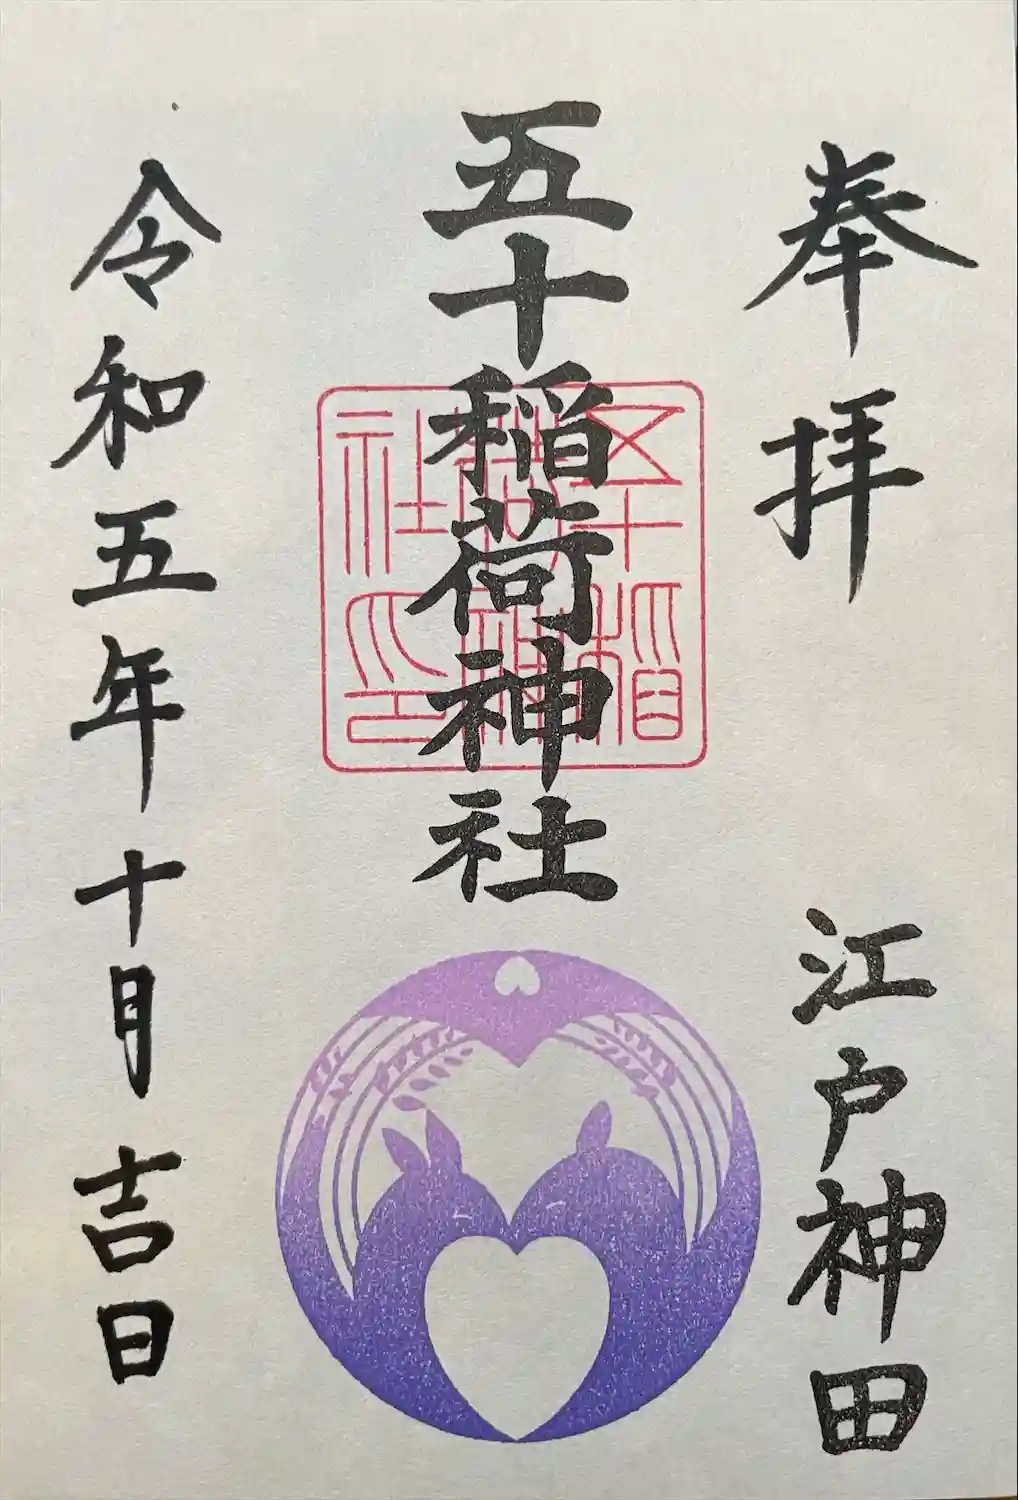 奉拝
江戸神田
五十稲荷神社
五十稲
荷神
社印
令和五年十月吉日